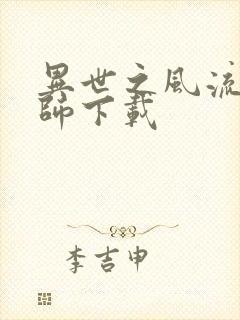 異世之風流
師下載
李吉申